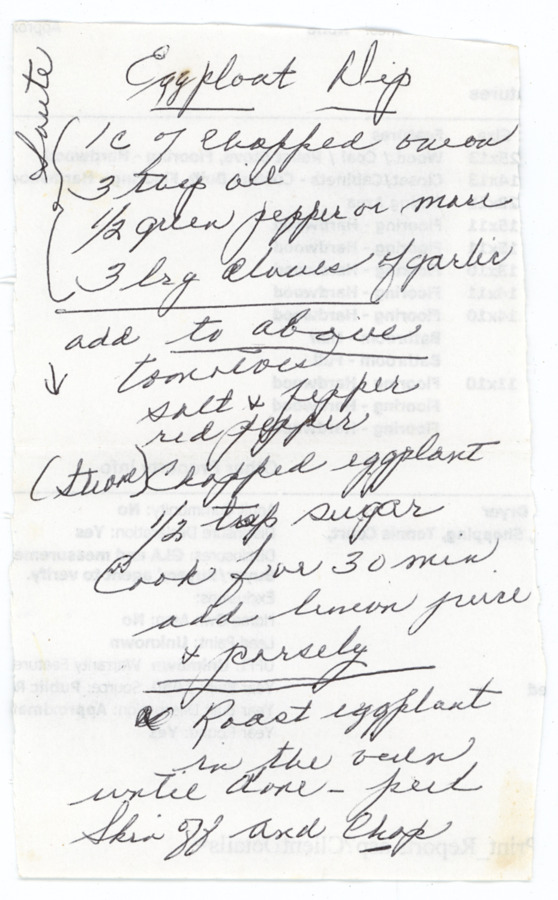 Eggploat Dip
Saute
1 c of chopped onion
3 tbsp oil
1/2 green pepper or more
3 lrg cloves of garlic
add to above
tomatoes
salt & pepper
red pepper
chopped eggplant
1/2 tsp sugar
(Cook for 30 min)
add lemon juice
& parsely
Roast eggplant
in the oven
until done - peel
skin off and Chop